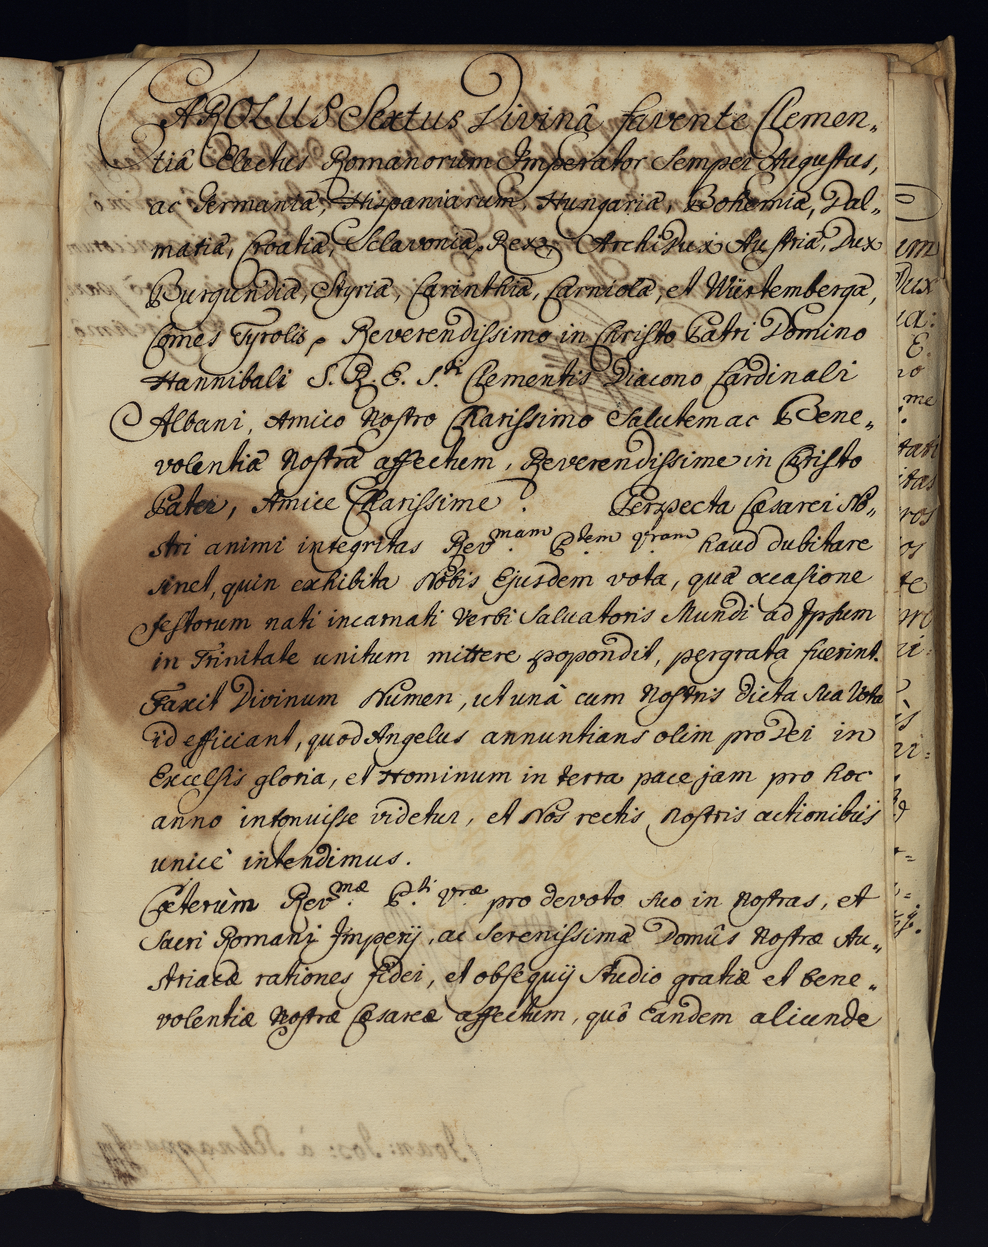 CAROLUS Sextus Divinâ favente Clemen„
tiâ Electus Romanorum Imperator Semper Augustus,
ac Germaniæ, Hispaniarum, Hungariæ, Bohemiæ, Dal„
matiæ, Croatiæ, Sclavoniæ Rex, ArchiDux Austriæ, Dux
Burgundiæ, Styriæ, Carinthiæ, Carniolæ, et Würtembergæ,
Comes Tyrolis, Reverendissimo in Christo Patri Domino
Hannibali S. R. E. S.ti Clementis Diacono Cardinali
Albani, Amico Nostro Charissimo Salutem ac Bene„
volentiæ Nostræ affectum, Reverendissime in Christo
Pater, Amice Charissime. Perspecta Cæsarei No„
stri animi integritas Rev.mam P.tem Vram haud dubitare
sinet, quin exhibita Nobis Ejusdem vota, quæ occasione
festorum nati incarnati Verbi Salvatoris Mundi ad Ipsum
in Trinitate unitum mittere spopondit, pergrata fuerint.
Faxit Divinum Numen, ut unà cum Nostris dicta sua Vota
id efficiant, quod Angelus annuntians olim pro Dei in
Excelsis gloria, et Hominum in terra pace jam pro hoc
anno intonuisse videtur, et Nos rectis Nostris actionibus
unicè intendimus.
Cæterùm Rev.mæ P.ti Vræ pro devoto suo in Nostras, et
Sacri Romani Imperij, ac Serenissimæ Domûs Nostræ Au„
striacæ rationes fidei, et obsequij studio gratiæ et bene„
volentiæ Nostræ Cæsareæ affectum, quô Eandem aliunde